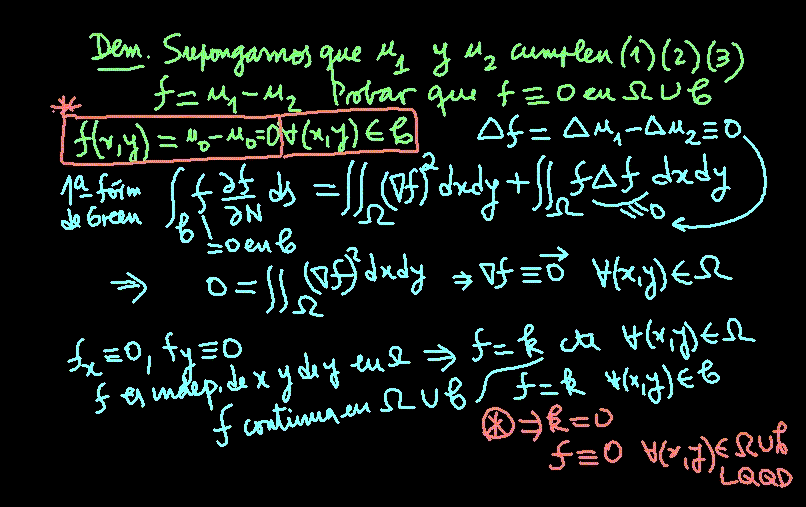 Dem. Supongamos que u₁ y u₂ cumplen (1) (2) (3)
f = u₁ - u₂ Probar que f ≡ 0 en Ω ∪ 𝒞
* f(x,y) = u₀ - u₀ = 0 ∀(x,y) ∈ 𝒞 Δf = Δu₁ - Δu₂ ≡ 0
1ª fórm de Green ∫_𝒞 f ∂f/∂N ds = ∬_Ω (∇f)² dxdy + ∬_Ω f Δf dxdy
= 0 en 𝒞 ≡ 0
⇒ 0 = ∬_Ω (∇f)² dxdy ⇒ ∇f ≡ 0⃗ ∀(x,y) ∈ Ω
fₓ ≡ 0, f_y ≡ 0 ⇒ f = k cte ∀(x,y) ∈ Ω
f es indep. de x y de y en Ω
f continua en Ω ∪ 𝒞 f = k ∀(x,y) ∈ 𝒞
⊛ ⇒ k = 0
f ≡ 0 ∀(x,y) ∈ Ω ∪ 𝒞
LQQD